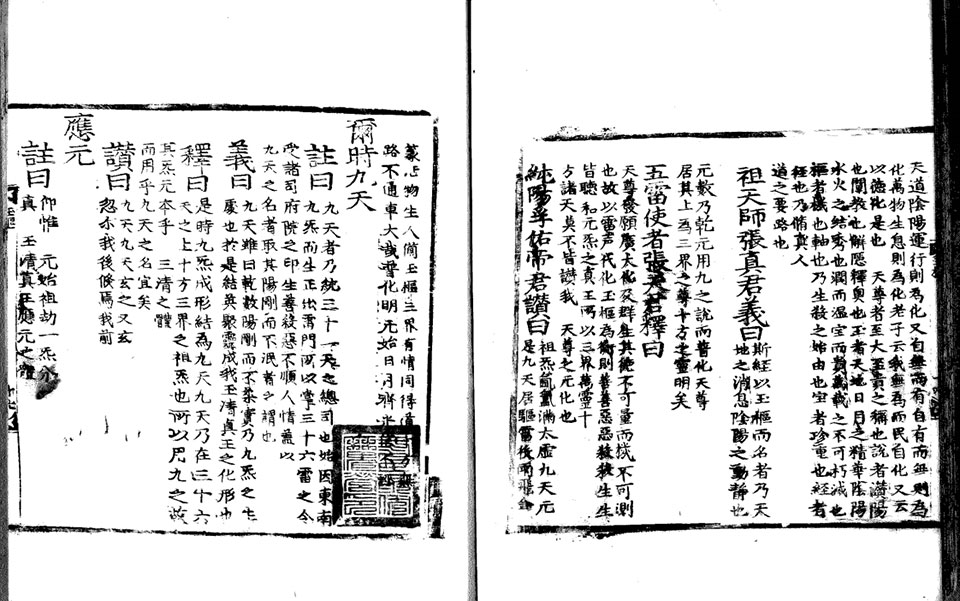 天道陰陽運行則為化又自無而有自有而無則為
化萬物生息則為化老子云我無為而民自化又云
以德化是也　天尊者至大至貴之稱也說者潜陽
也闡教也解隱釋奥也玉者天地日月之精華陰陽
水火之結秀也潤而温宝而貴藏之不可朽滅也
樞者機也軸也乃生殺之始由也宝者珍重也經者
經也乃脩真人
道之要路也
祖天師張真君義曰斯經以玉樞而名者乃天
地之消息陰陽之動静也
元數乃乾元用九之說而普化天尊
居其上為三界之尊十方之靈明矣
五雷使者張天君釋曰
天尊發願廣大化及群生其徳不可量而機不可測
也故以雷声代化玉樞為衡則善善惡惡殺殺生生
皆聴和元炁之真王所以三界萬靈十
方諸天莫不皆讃我　天尊之元化也
純陽孚佑帝君讃曰祖炁氤氲滿太虚九天元
是九天居驅雷
物生人闡玉樞三界有情同得道
路不通車大哉聖化明元始日月
爾時九天
註曰九天者乃統三十一天之總司也始因東南
九炁而生正出雷門所以掌三十六雷之令
受諸司府院之印生善殺惡不順人情蓋以
九天之名者取其陽剛而不泯者之謂也
義曰九天雖曰乾數陽剛而不柔實乃九炁之生
慶也於是結英聚靈成我玉清真王之化形也
釋曰是時九炁成形結為九天九天乃在三十六
天之上十方三界之祖炁也所以凡九之
其炁元本乎　三清之體
而用乎九天之名宜矣
讃曰九天九天玄之又玄
忽示我後倏焉我前
應元
註曰即惟　元始祖劫一炁
真　玉清真王應元之體